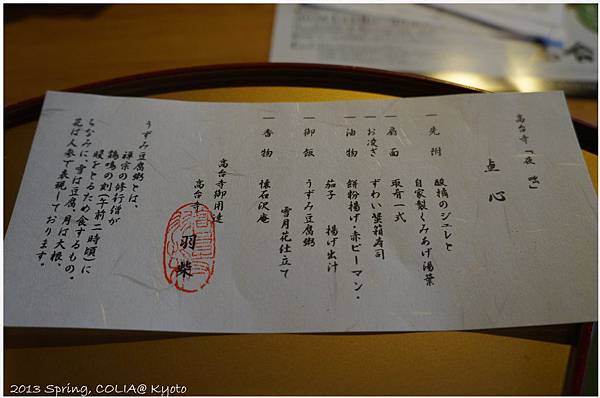 高台寺「夜咄」
点心
一先附
酸橘のジュレと
自家製くみあげ湯葉
一扇面
取肴一式
一お凌ぎ
ずわい蟹箱寿司
一油物
餅粉揚げ・赤ピーマン・
茄子 揚げ出汁
一御飯
うずみ豆腐粥
雪月花仕立て
一香物
懐石沢庵
高台寺御用達
高台寺 羽柴
うずみ豆腐粥とは、
禅宗の修行僧が
鶏鳴の刻(午前二時頃)に
暖をとるため食するもの。
ちなみに、雪は豆腐、月は大根、
花は人参で表現しております。
2013 Spring, COLIA@ Kyoto